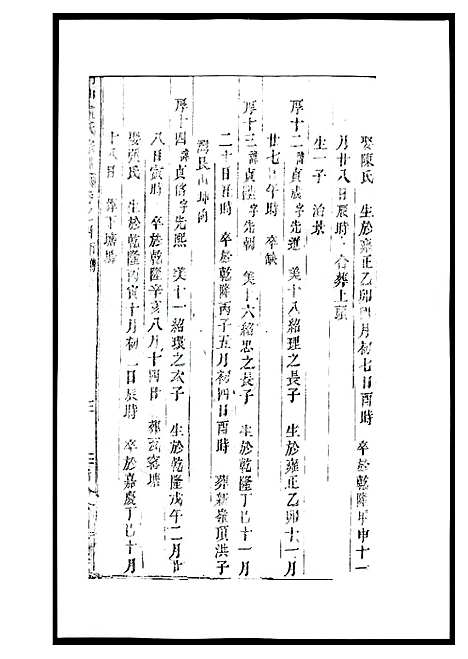 娶陳氏 生於雍正乙卯四月初七日酉時 卒於乾隆 申十一
月廿八日辰時 合葬上
生一子 治景
厚十二 諱貞 字先進 美十八紹理之長子 生於雍正乙卯十一月
廿七日午時 卒缺
厚十三 諱貞 字先 美十六紹忠之長子 生於乾隆丁巳十一月
二十日丑時 卒於乾隆丙子五月初四日酉時 葬新嶺頂洪子
灣艮山坤向
厚十四 諱貞 字先熙 美十一紹環之次子 生於乾隆戊午二月廿
八日寅時 卒於乾隆辛亥八月十四日 葬 窰塘
娶張氏 生於乾隆丙寅十月初一日辰時 卒於嘉慶丁巳十月
十八日 葬下塘